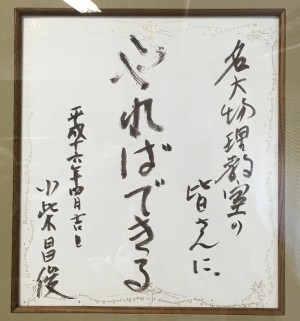 名大物理教室の
皆さんに、
やればできる
平成十六年四月吉日
小柴昌俊